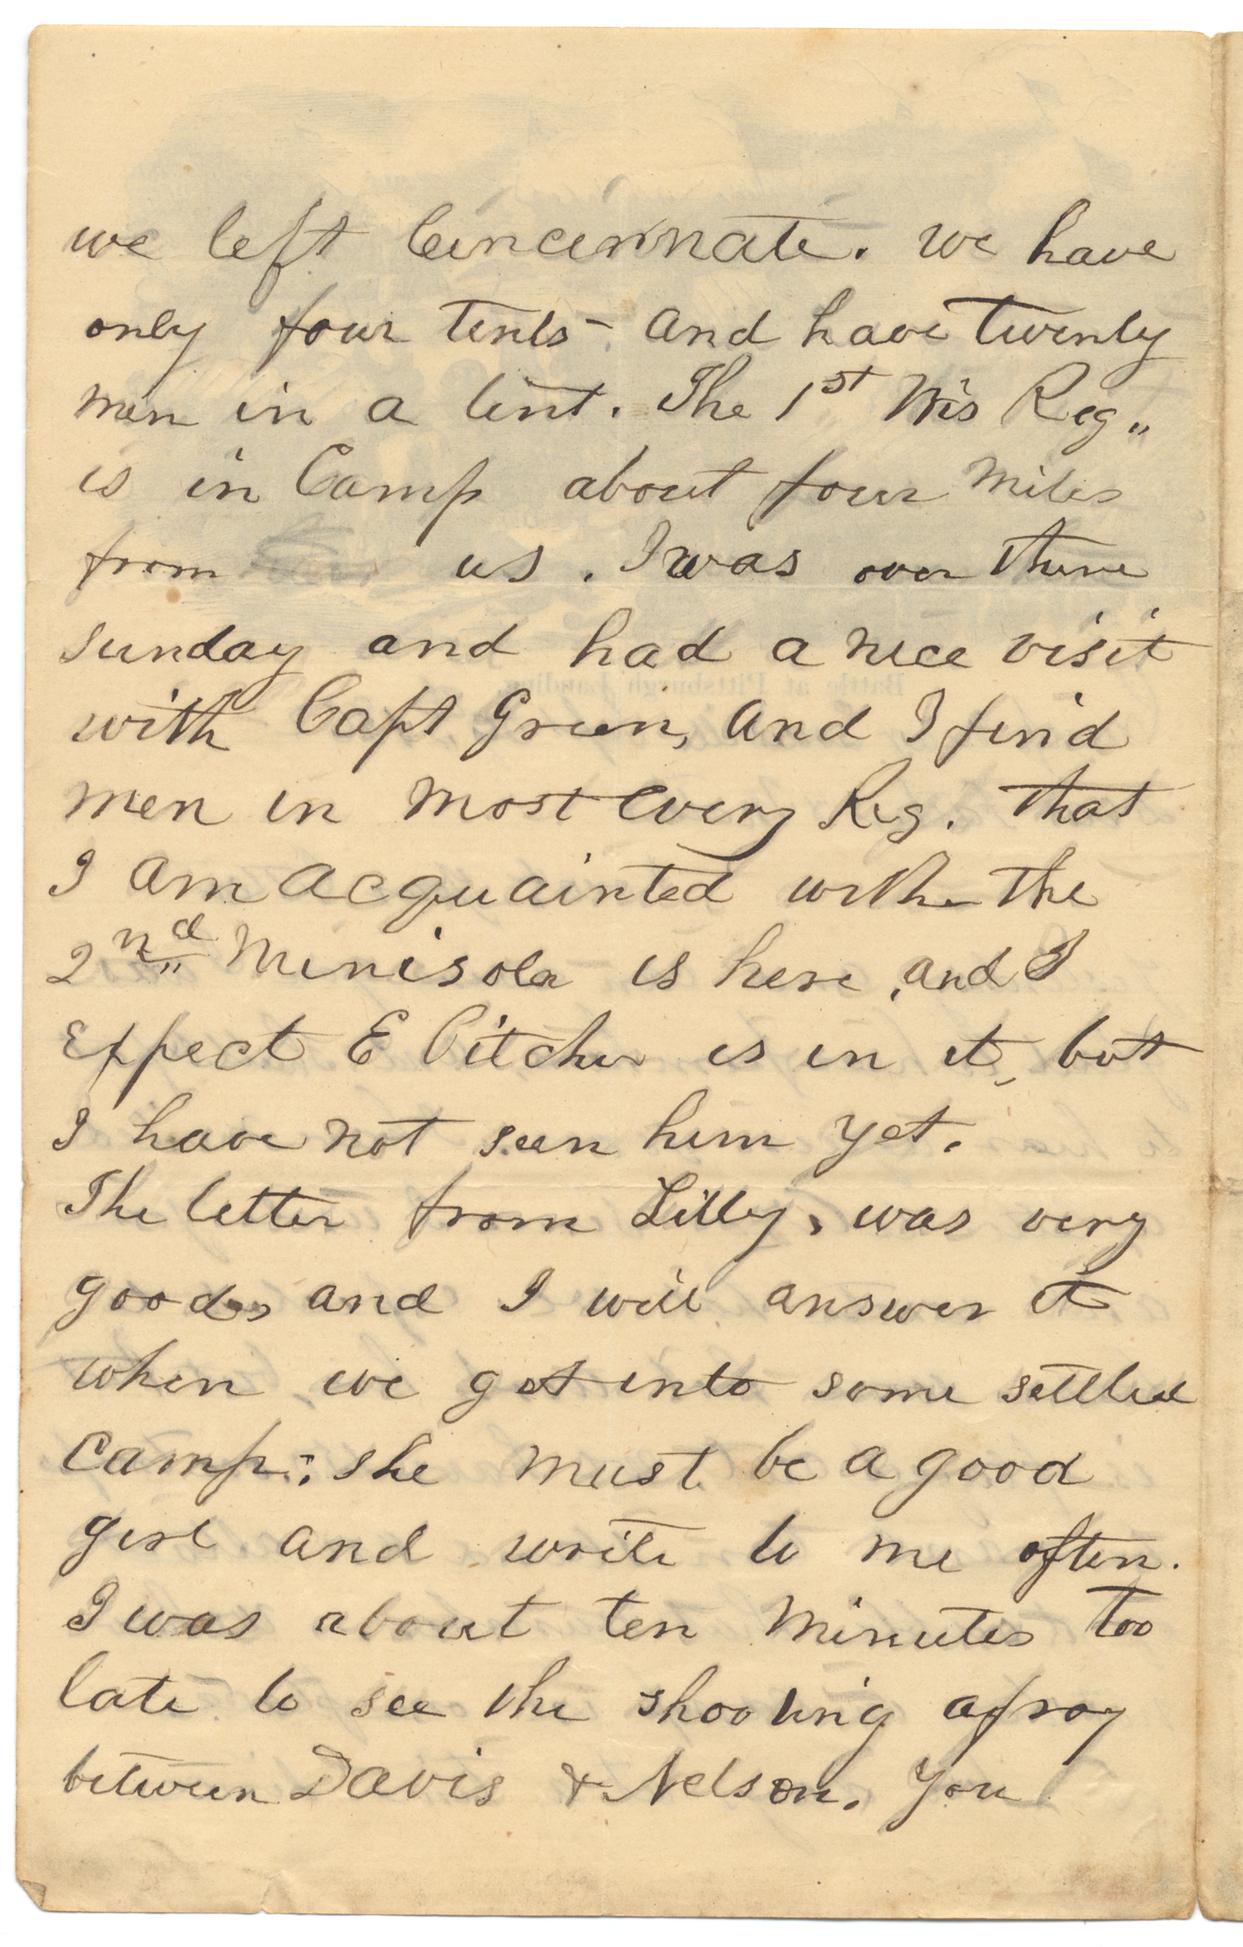 we left Cincinnate. we have
only four tents - and have twenty
men in a tent. The 1st Wis Reg"
is in Camp about four miles
from us. I was over there
sunday and had a nice visit
Battle at Pittsburgh Landing.
with Capt Green, and I find
men in most every Reg. that
I am acquainted with the
2nd" Minisota is here, and I
Expect E Pitcher is in it, but
I have not seen him yet.
The letter from Lilly, was very
good, and I will answer it
when we get into some settled
Camp; she must be a good
girl and write to me often.
I was about ten minutes too
late to see the shooting afray
between Davis & Nelson. You